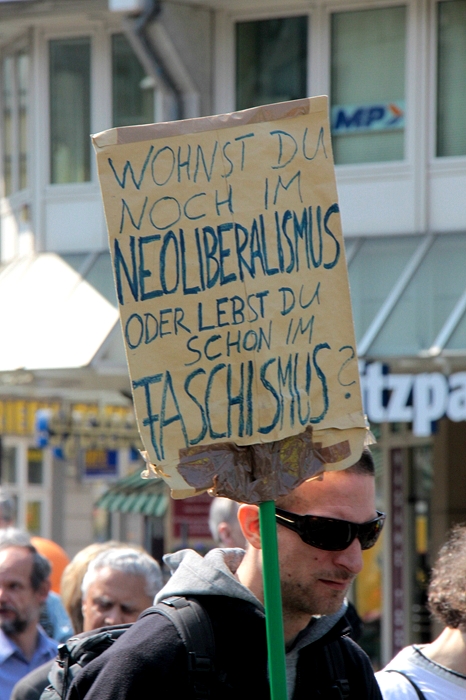 WOHNST DU
NOCH IM
NEOLIBERALISMUS
ODER LEBST DU
SCHON IM
FASCHISMUS?
MP
tzpa